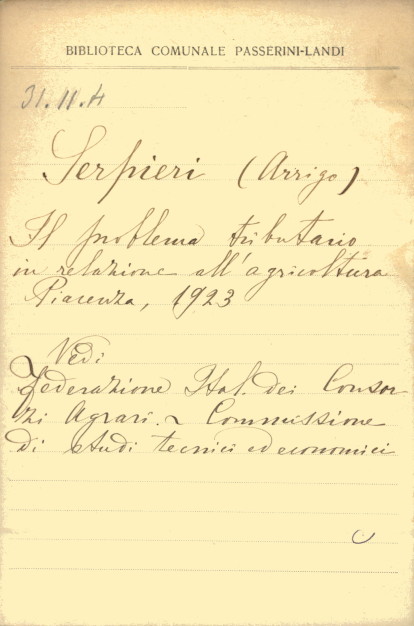 BIBLIOTECA COMUNALE PASSERINI-LANDI
31.11.4
Serpieri (Arrigo)
Il problema tributario
in relazione all'agricoltura
Piacenza, 1923
Vedi
Federazione Ital. dei Consor
zi Agrari. ~ Commissione
di studi tecnici ed economici